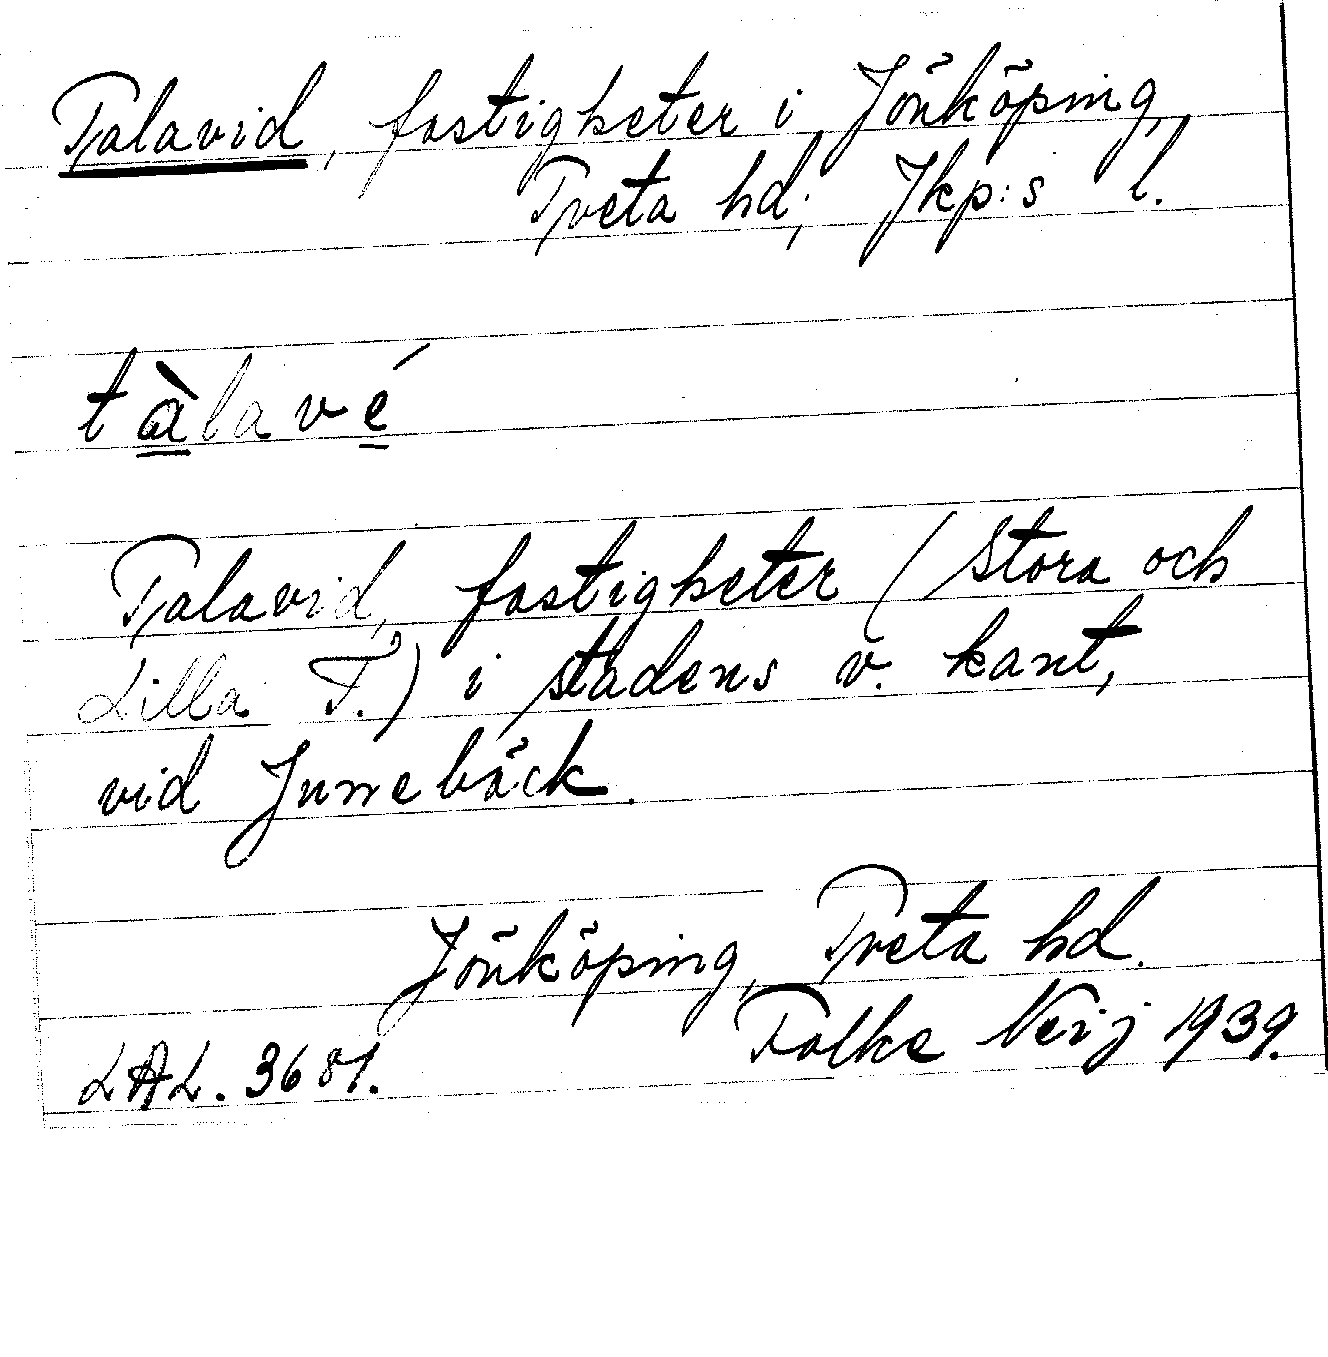 Talavid, fastigheter i Jönköping,
Tveta hd; Jkp:s l.
tàlavé
Talavid, fastigheter (Stora och
Lilla T.) i stadens v. kant,
vid Junebäck.
Jönköping, Tveta hd.
LAL. 3681. Folke Neij 1939.